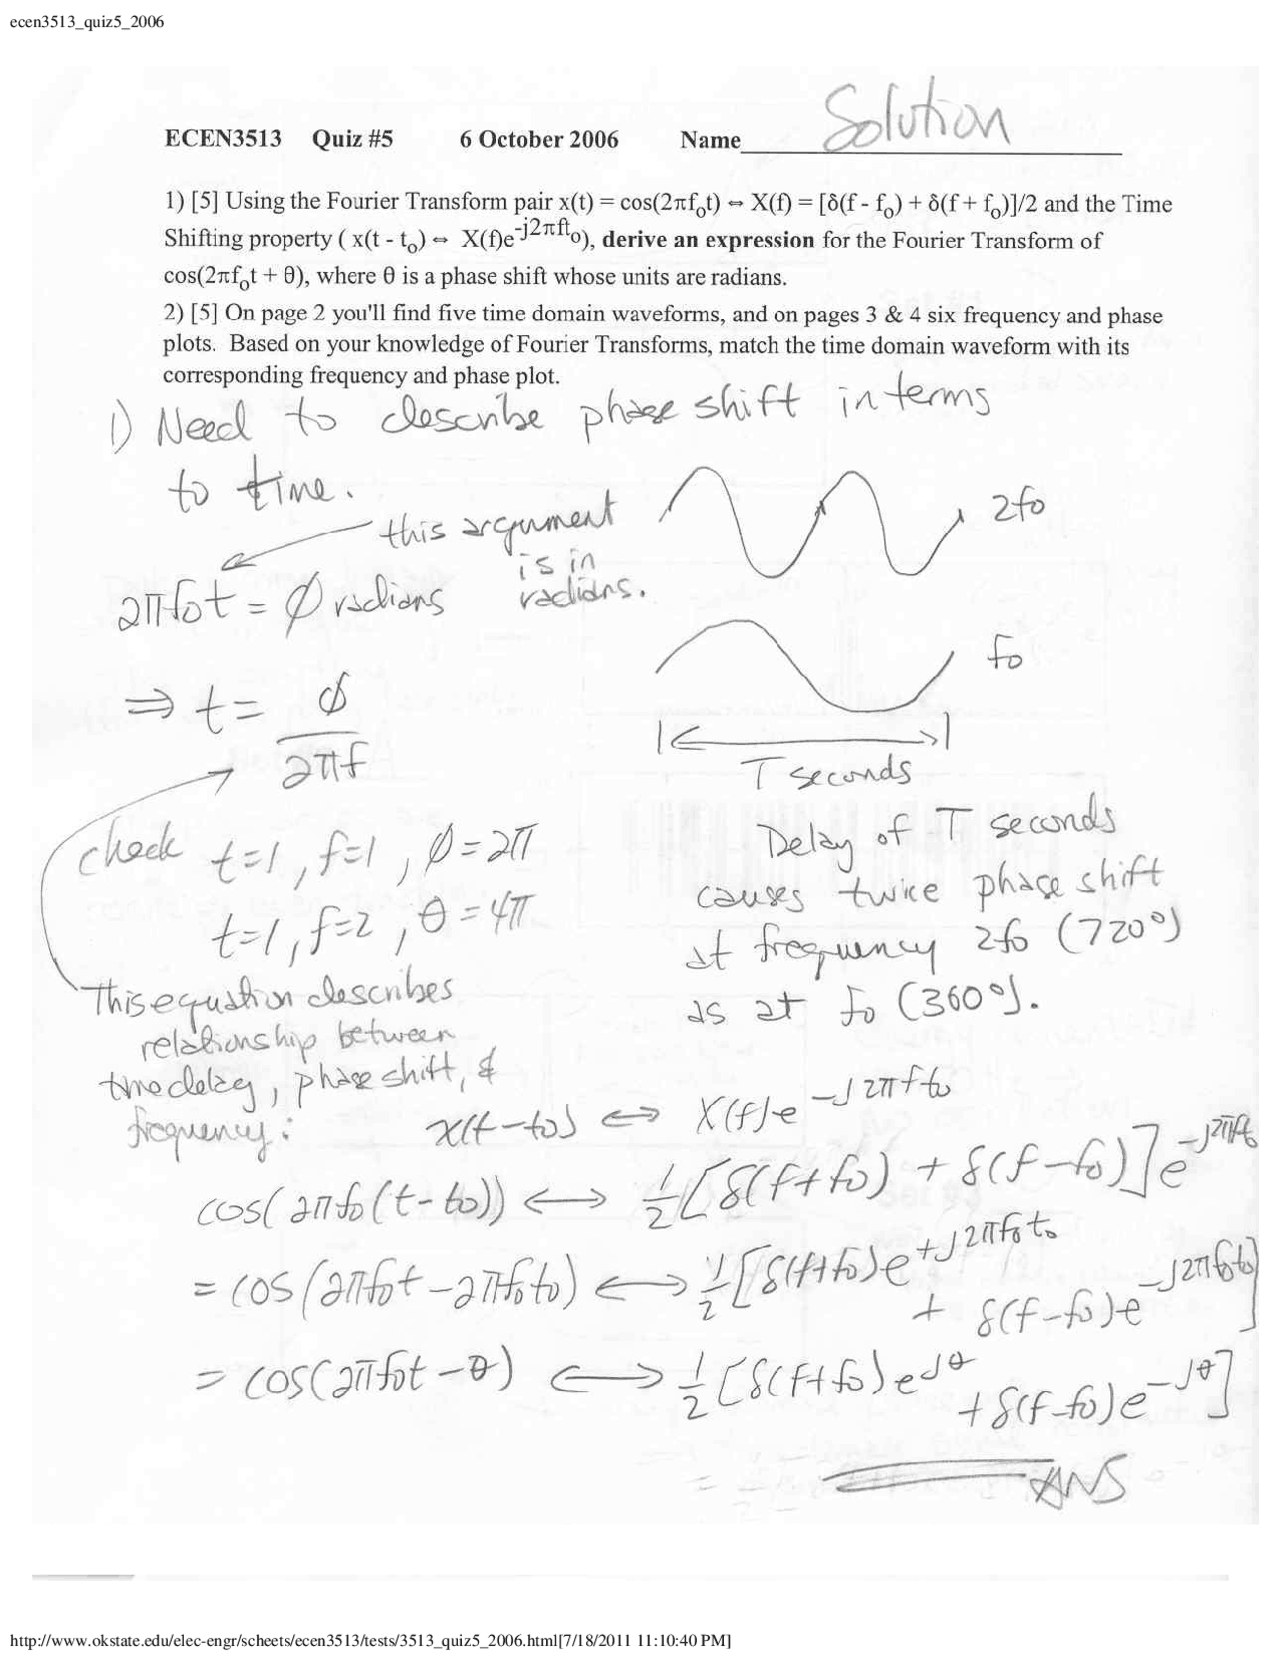 ecen3513_quiz5_2006
Solution
ECEN3513 Quiz #5 6 October 2006 Name
1) [5] Using the Fourier Transform pair x(t) = cos(2πfₒt) ↔ X(f) = [δ(f - fₒ) + δ(f + fₒ)]/2 and the Time
Shifting property ( x(t - tₒ) ↔ X(f)e^-j2πftₒ), derive an expression for the Fourier Transform of
cos(2πfₒt + θ), where θ is a phase shift whose units are radians.
2) [5] On page 2 you'll find five time domain waveforms, and on pages 3 & 4 six frequency and phase
plots. Based on your knowledge of Fourier Transforms, match the time domain waveform with its
corresponding frequency and phase plot.
1) Need to describe phase shift in terms
to time.
this argument
is in
radians.
2πfₒt = ϕ radians
⇒ t = ϕ
2πf
check t=1, f=1, ϕ=2π
t=1, f=2, θ=4π
This equation describes
relationship between
time delay, phase shift, &
frequency:
2fₒ
fₒ
T seconds
Delay of T seconds
causes twice phase shift
at frequency 2fₒ (720°)
as at fₒ (360°).
x(t-tₒ) ⇔ X(f)e^-j2πftₒ
cos(2πfₒ(t-tₒ)) ⟺ 1/2 [δ(f+fₒ) + δ(f-fₒ)] e^-j2πftₒ
= cos(2πfₒt - 2πfₒtₒ) ⟺ 1/2 [δ(f+fₒ)e^+j2πfₒtₒ
+ δ(f-fₒ)e^-j2πfₒtₒ]
= cos(2πfₒt - θ) ⟺ 1/2 [δ(f+fₒ)e^jθ
+ δ(f-fₒ)e^-jθ]
ANS
http://www.okstate.edu/elec-engr/scheets/ecen3513/tests/3513_quiz5_2006.html[7/18/2011 11:10:40 PM]